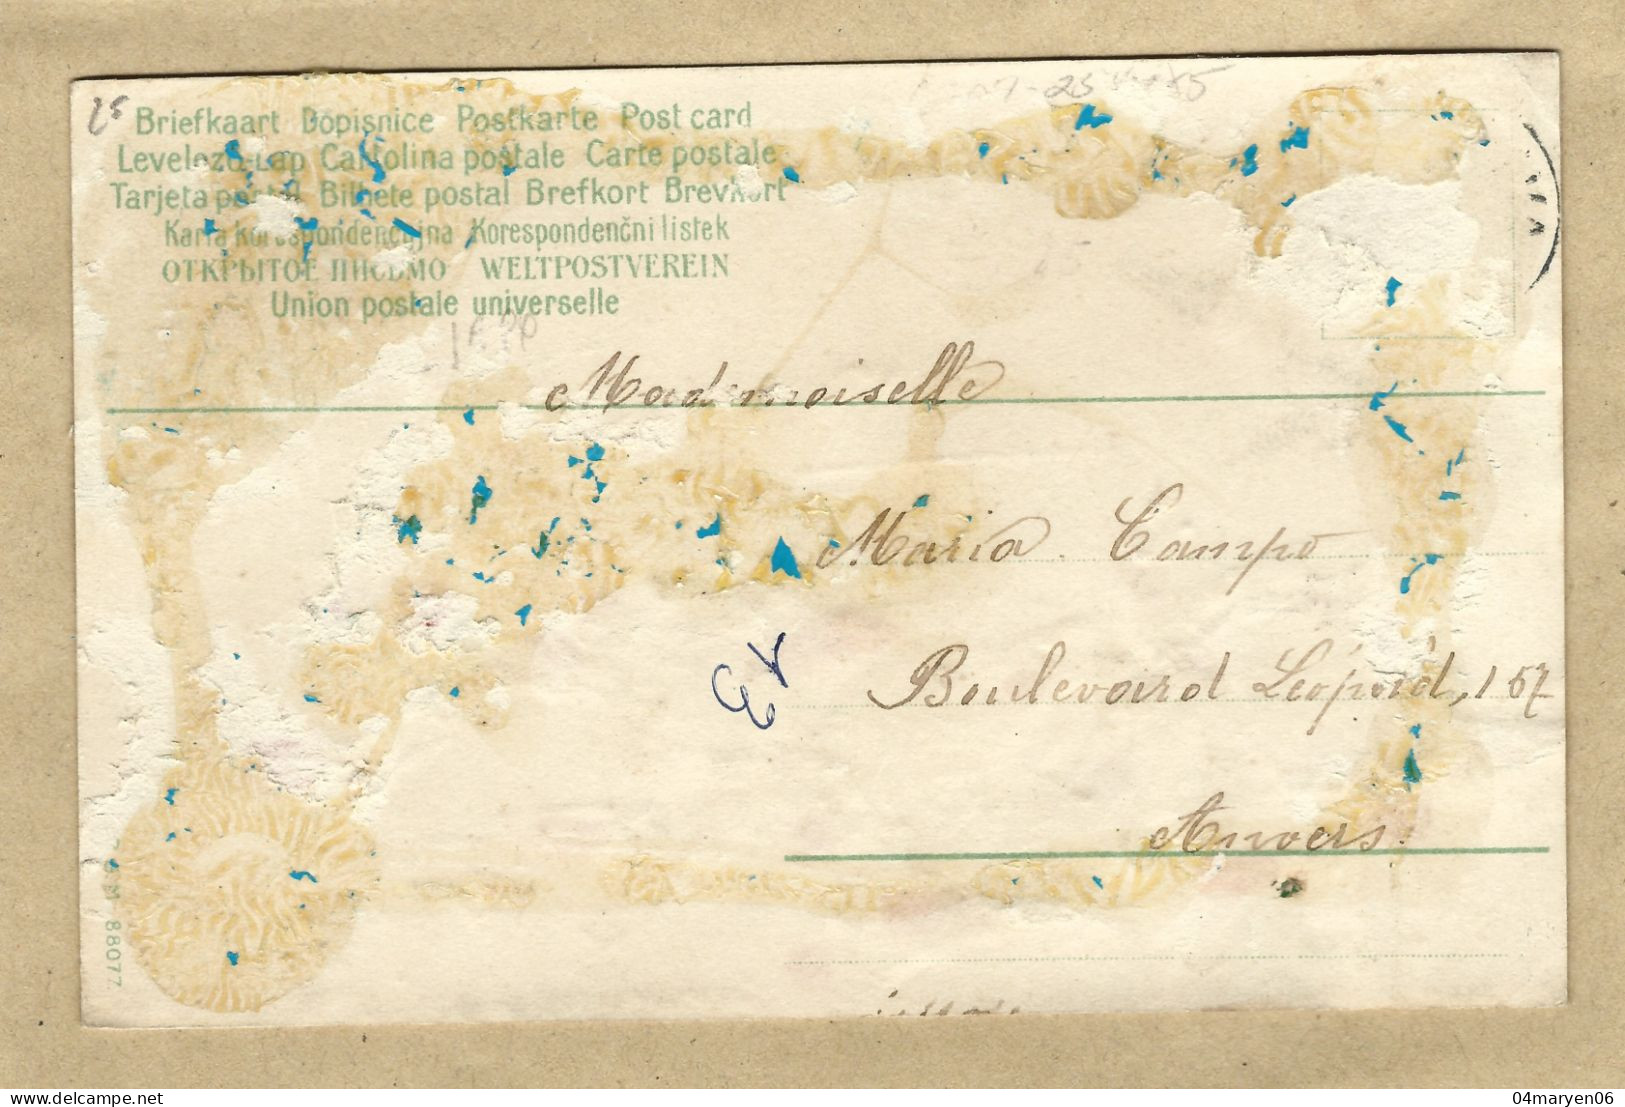 25
Briefkaart Dopisnice Postkarte Post card
Levelező-Lap Cartolina postale Carte postale
Tarjeta postal Bilhete postal Brefkort Brevkort
Karta korespondencyjna Korespondenčni listek
ОТКРЫТОЕ ПИСЬМО WELTPOSTVEREIN
Union postale universelle
Mademoiselle
Maria Campo
Boulevard Léopold, 167
Anvers
88077
04maryen06
delcampe.net